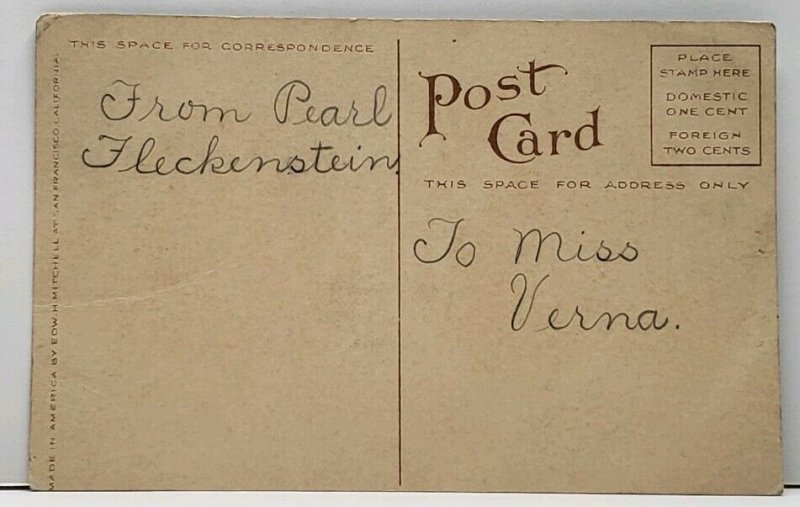 THIS SPACE FOR CORRESPONDENCE
From Pearl
Fleckenstein.
MADE IN AMERICA BY EDW. H. MITCHELL AT SAN FRANCISCO, CALIFORNIA.
Post
Card
PLACE
STAMP HERE
DOMESTIC
ONE CENT
FOREIGN
TWO CENTS
THIS SPACE FOR ADDRESS ONLY
To Miss
Verna.